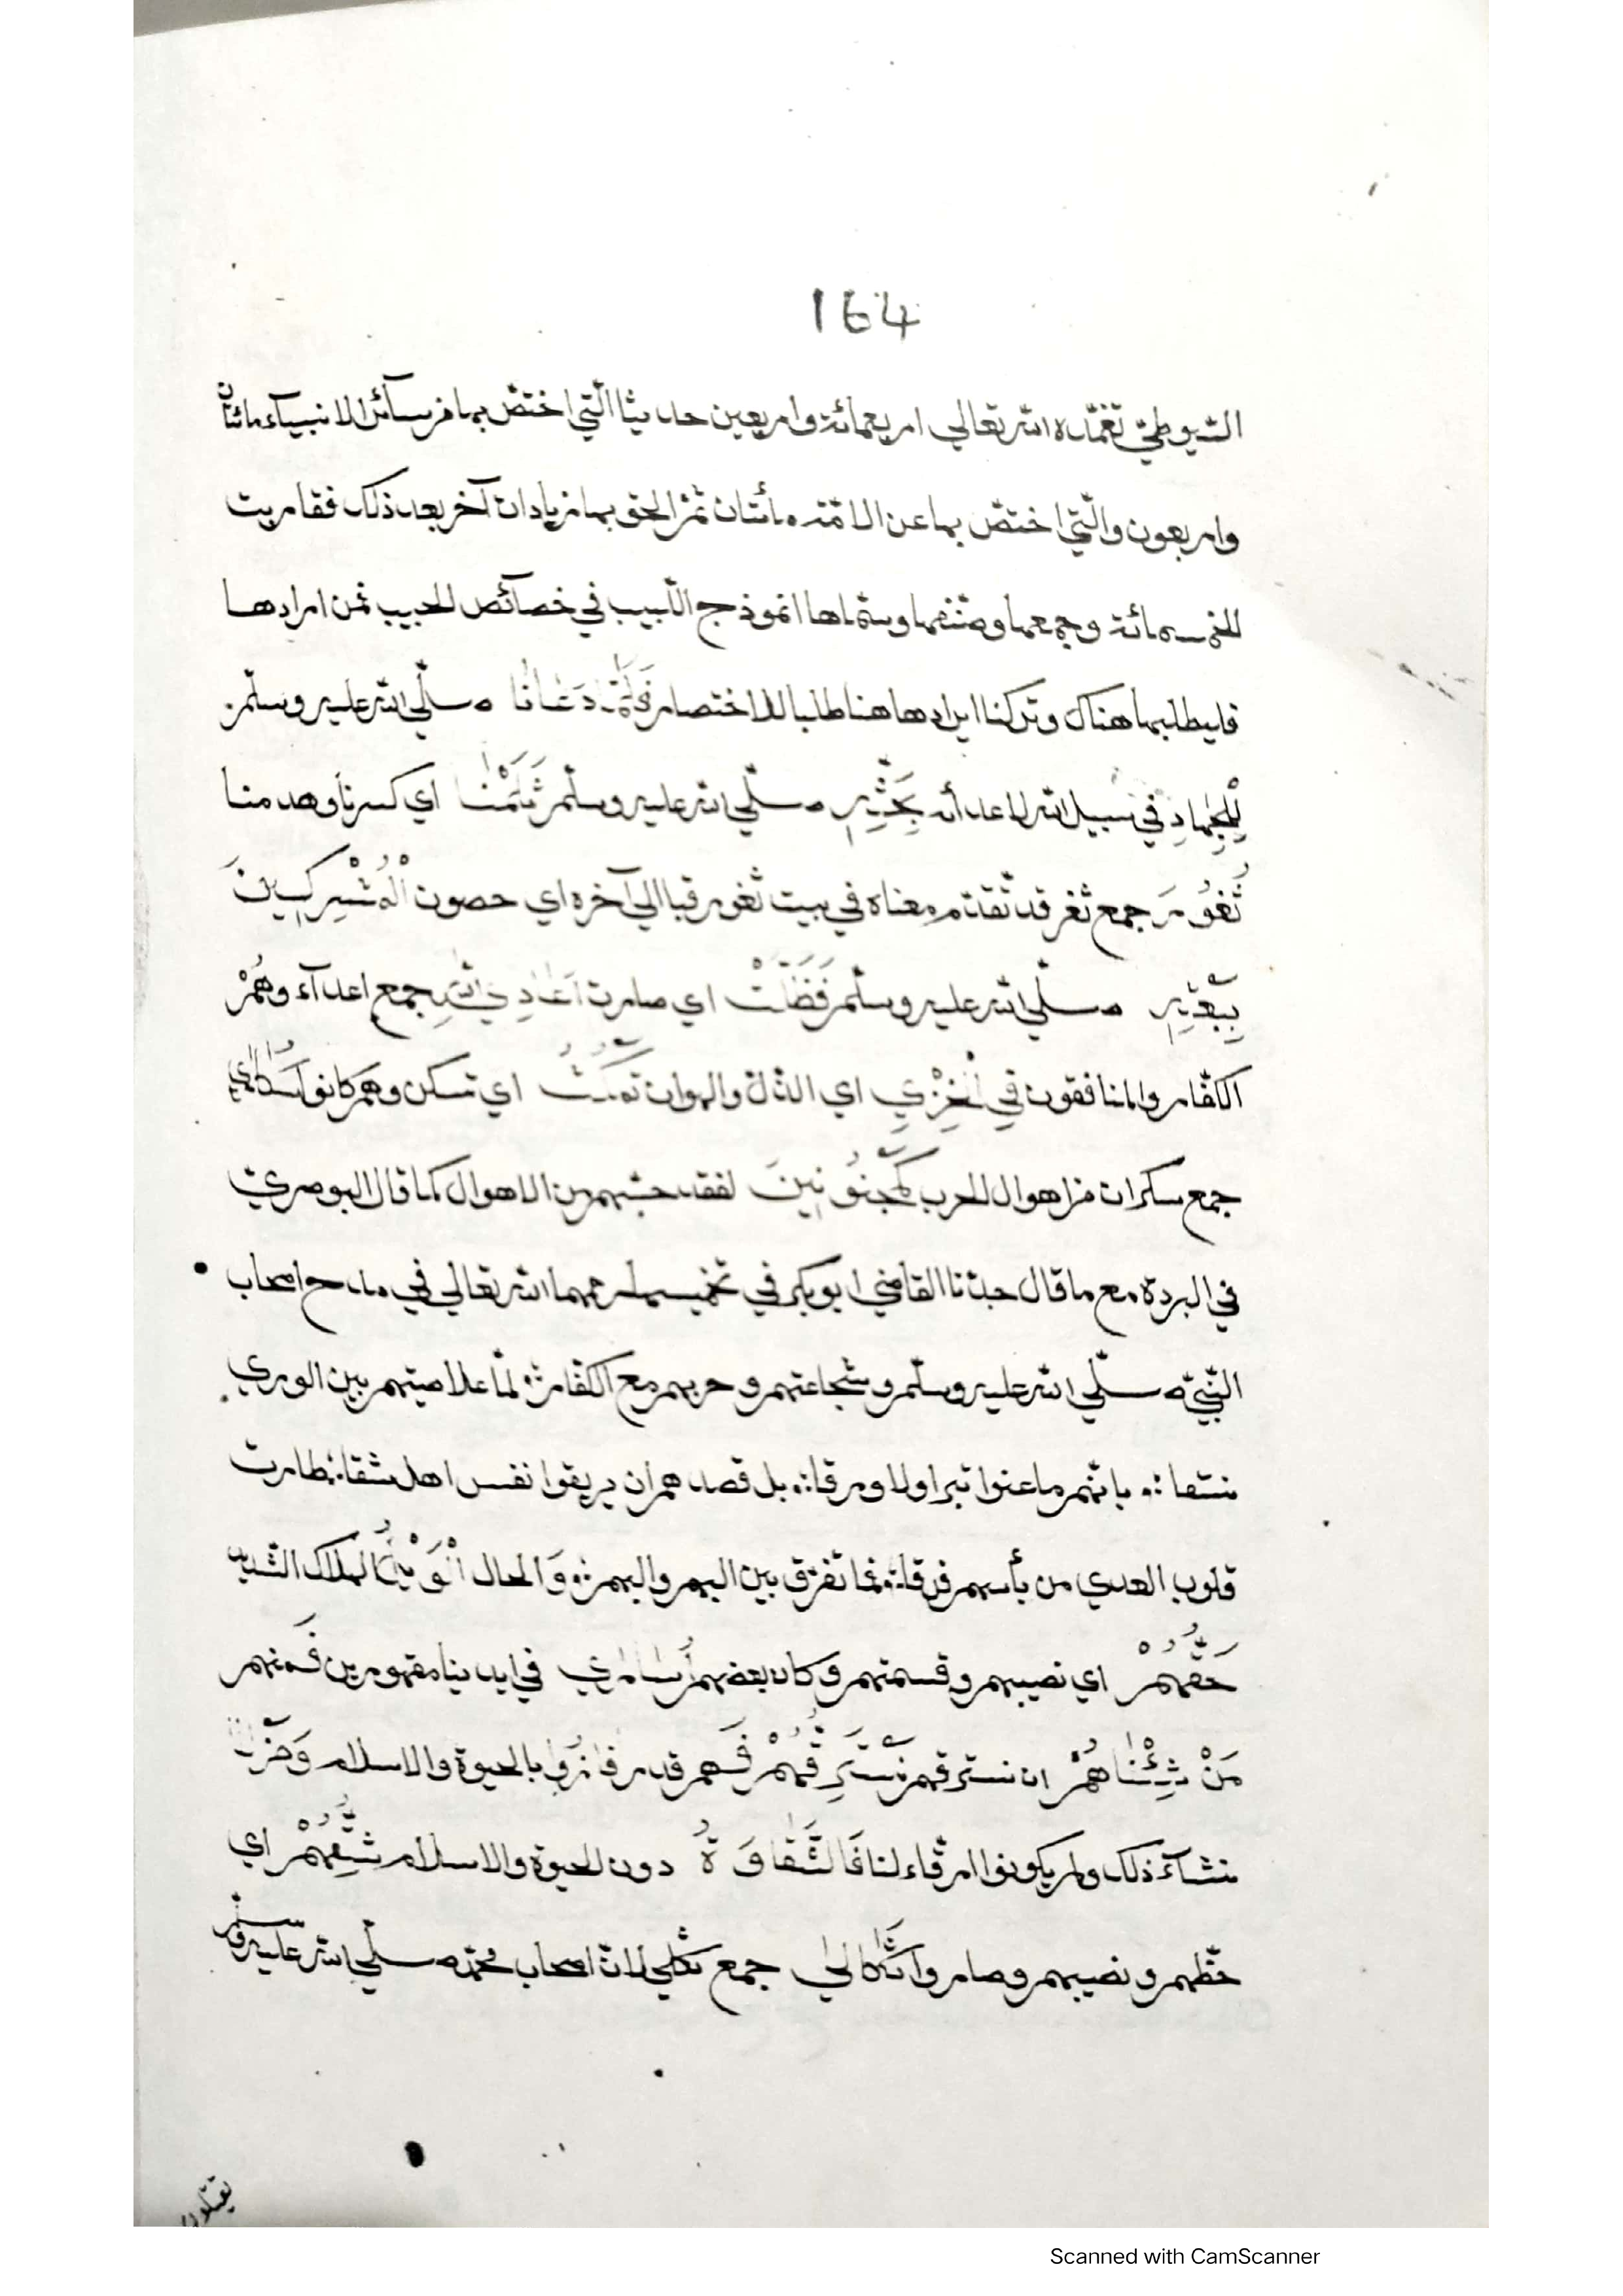 164
السّيوطيّ تغمّده الله تعالي اربعمائة واربعين حديثا الّتي اختصّ بها من سآئر الانبيآء مائتان
واربعون والّتي اختصّ بها عن الامّة مأئتان ثمّ الحق بها زيادات آخر بعد ذلك فقاربت
الخمسمائة وجمعها وصنّفها وسمّاها انموذج اللّبيب في خصآئص الحبيب فمن ارادها
فليطلبها هناك وتركنا ايرادها هنا طلبا للاختصار فَلَمَّا دَعَانَا صلّي الله عليه وسلّم
لِلْجِهَادِ في سبيل الله لاعدائه بِحَثِّهِ صلّي الله عليه وسلّم ثَلَمْنَا اي كسرنا وهدمنا
ثُغُورَ جمع ثغر قد تقدّم معناه في بيت ثغور قبا الي آخره اي حصون الْمُشْرِكِينَ
بِبَعْثِهِ صلّي الله عليه وسلّم فَظَلَّتْ اي صارت اَعَادِي اللهِ جمع اعدآء وهُمْ
الكفّار والمنافقون فِي الْخِزْيِ اي الذلّ والهوان تَمْكُثُ اي تسكن وهم كانوا سُكَارَي
جمع سكران من اهوال الحرب كَمَجْنُونِينَ لفقد حسّهم من الاهوال كما قال البوصري
في البردة مع ما قال جدّنا القاضي ابو بكر في تخميسها رحمهما الله تعالي في مدح اصحاب
النّبيّ صلّي الله عليه وسلّم وشجاعتهم وحربهم مع الكفّار ∴ لمّا علا صيتهم بين الوري
منتقا ∴ بانّهم ما عنوا تبرا ولا ورقا ∴ بل قصدهم ان يريقوا نفس اهل شقا ∴ طارت
قلوب العدي من بأسهم فرقا ∴ فما تفرّق بين البهم والبهم ∴ وَالحال الْوَيْلُ الهلاك الشّديد
حَقُّهُمْ اي نصيبهم وقسمتهم وكان بعضهم أُسَارَي في ايدينا مقهورين فَمنهم
مَنْ شِئْنَاهُمْ ان نسترقهم نَسْتَرِقُّهُمْ فَهم قد فَازُوا بالحيوة والاسلام وَمَنْ لَا
نشآء ذلك ولم يكونوا ارقّاء لنا فَالشَّقَاوَةُ دون الحيوة والاسلام شِقُّهُمْ اي
حظّهم ونصيبهم وصاروا ثَكَالَي جمع ثكلي لانّ اصحاب محمّد صلّي الله عليه وسلّم
يقتلون